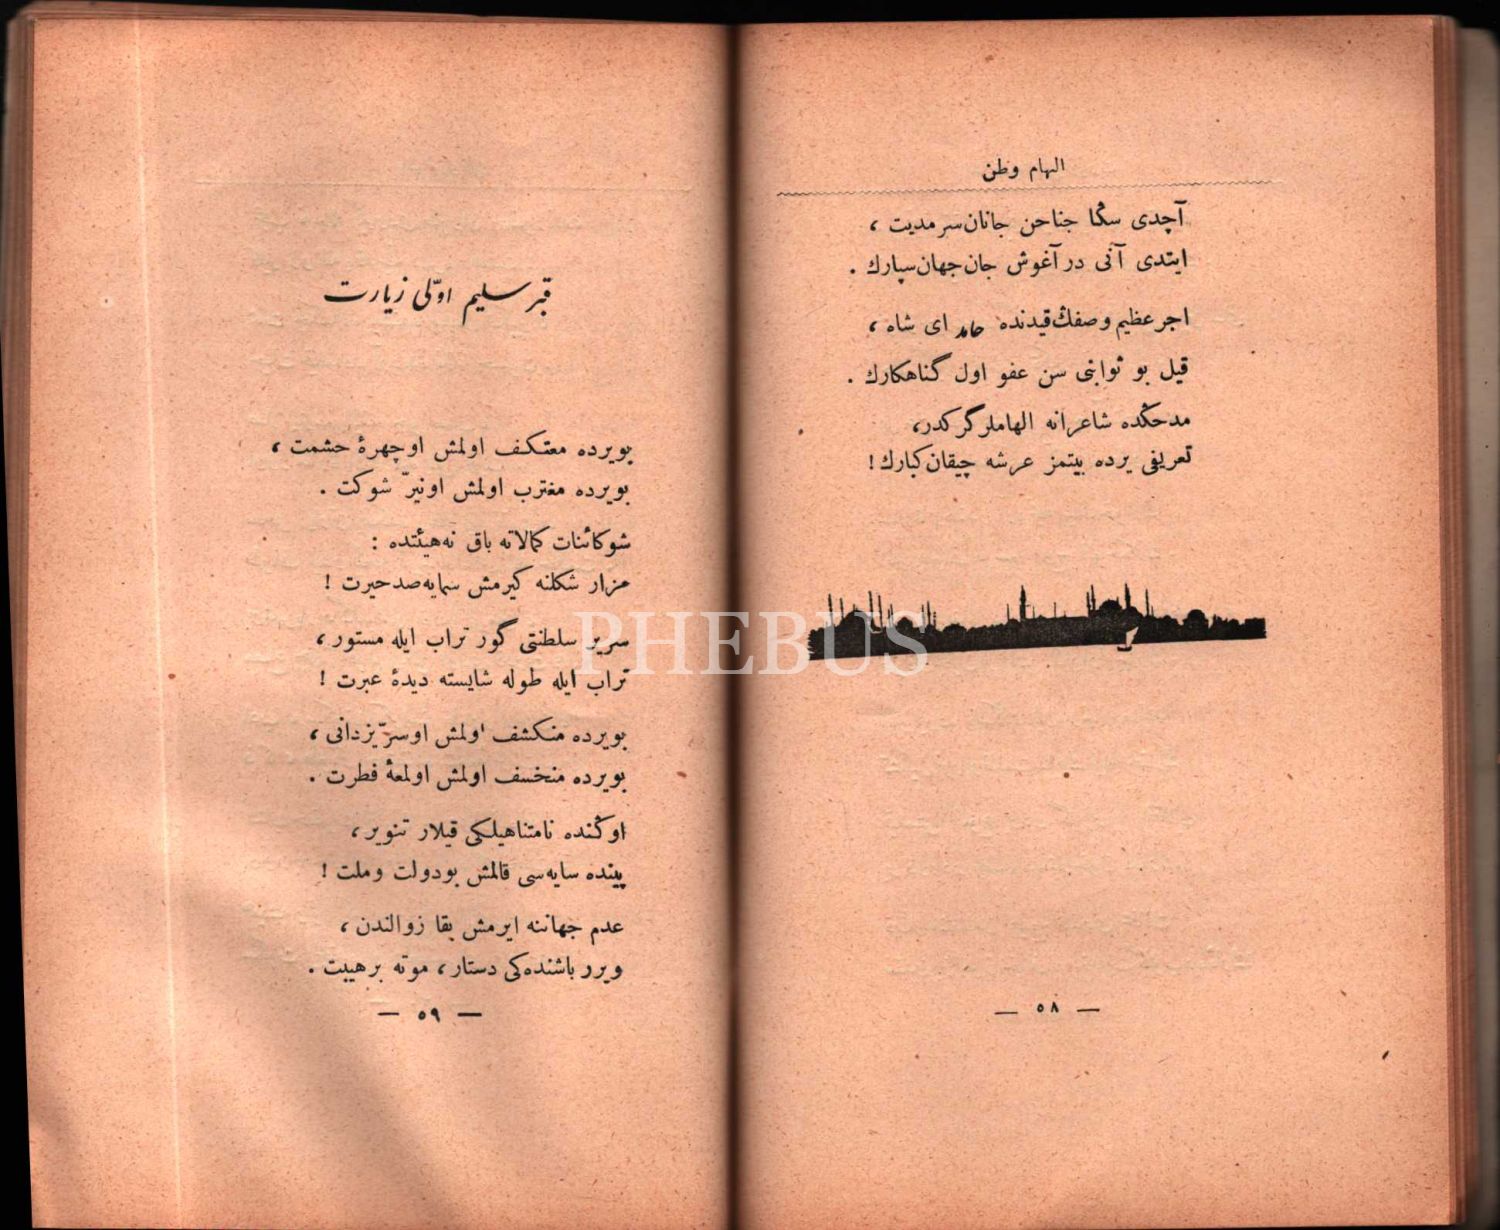 الهام وطن
آچدی سڭا جناحن جانان‌سرمدیت ،
ایتدی آنی درآغوش جان‌جهان‌سپارك .
اجرعظیم وصفك‌قیدنده حامد ای شاه ،
قیل بو ثوابنی سن عفو اول گناهکارك .
مدحڭده شاعرانه الهاملرگرکدر،
تعریفی یرده بیتمز عرشه چیقان‌کبارك !
— ٥٨ —
قبر سلیم اوّلی زیارت
بویرده معتکف اولمش اوچهرهٔ حشمت ،
بویرده مغترب اولمش اونیرّ شوکت .
شوکائنات کمالاته باق نه‌هیئتده :
مزار شکلنه کیرمش سمایه‌صدحیرت !
سریر سلطنتی گور تراب ایله مستور ،
تراب ایله طوله شایسته دیدهٔ عبرت !
بویرده منکشف اولمش اوسرّیزدانی ،
بویرده منخسف اولمش اولمعهٔ فطرت .
اوڭنده نامتناهیلکی قیلار تنویر ،
پینده سایه‌سی قالمش بودولت وملت !
عدم جهاننه ایرمش بقا زوالندن ،
ویرر باشنده‌کی دستار ، موته برهیبت .
— ٥٩ —
PHEBUS